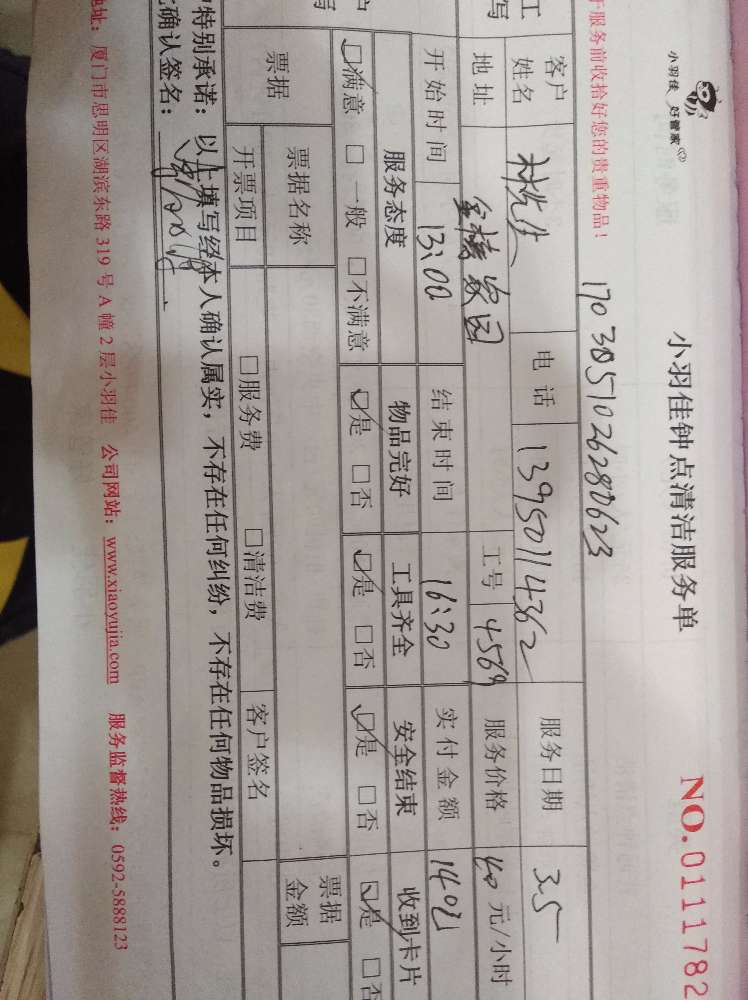 小羽佳 好管家
小羽佳钟点清洁服务单
NO.0111782
于服务前收拾好您的贵重物品！
1703051026280623
工
写
客户姓名 林先生 电话 13950114362 服务日期 3.5
地址 家园 工号 4569 服务价格 40 元/小时
开始时间 13:00 结束时间 16:30 实付金额 140元
服务态度 物品完好 工具齐全 安全结束 收到卡片
☑满意 □一般 □不满意 ☑是 □否 ☑是 □否 ☑是 □否 ☑是 □否
户
写
票据 票据名称 票据金额
开票项目 □服务费 □清洁费 客户签名
特别承诺：以上填写经本人确认属实，不存在任何纠纷，不存在任何物品损坏。
确认签名：
地址：厦门市思明区湖滨东路 319 号 A 幢 2 层小羽佳 公司网站：www.xiaoyujia.com 服务监督热线：0592-5888123